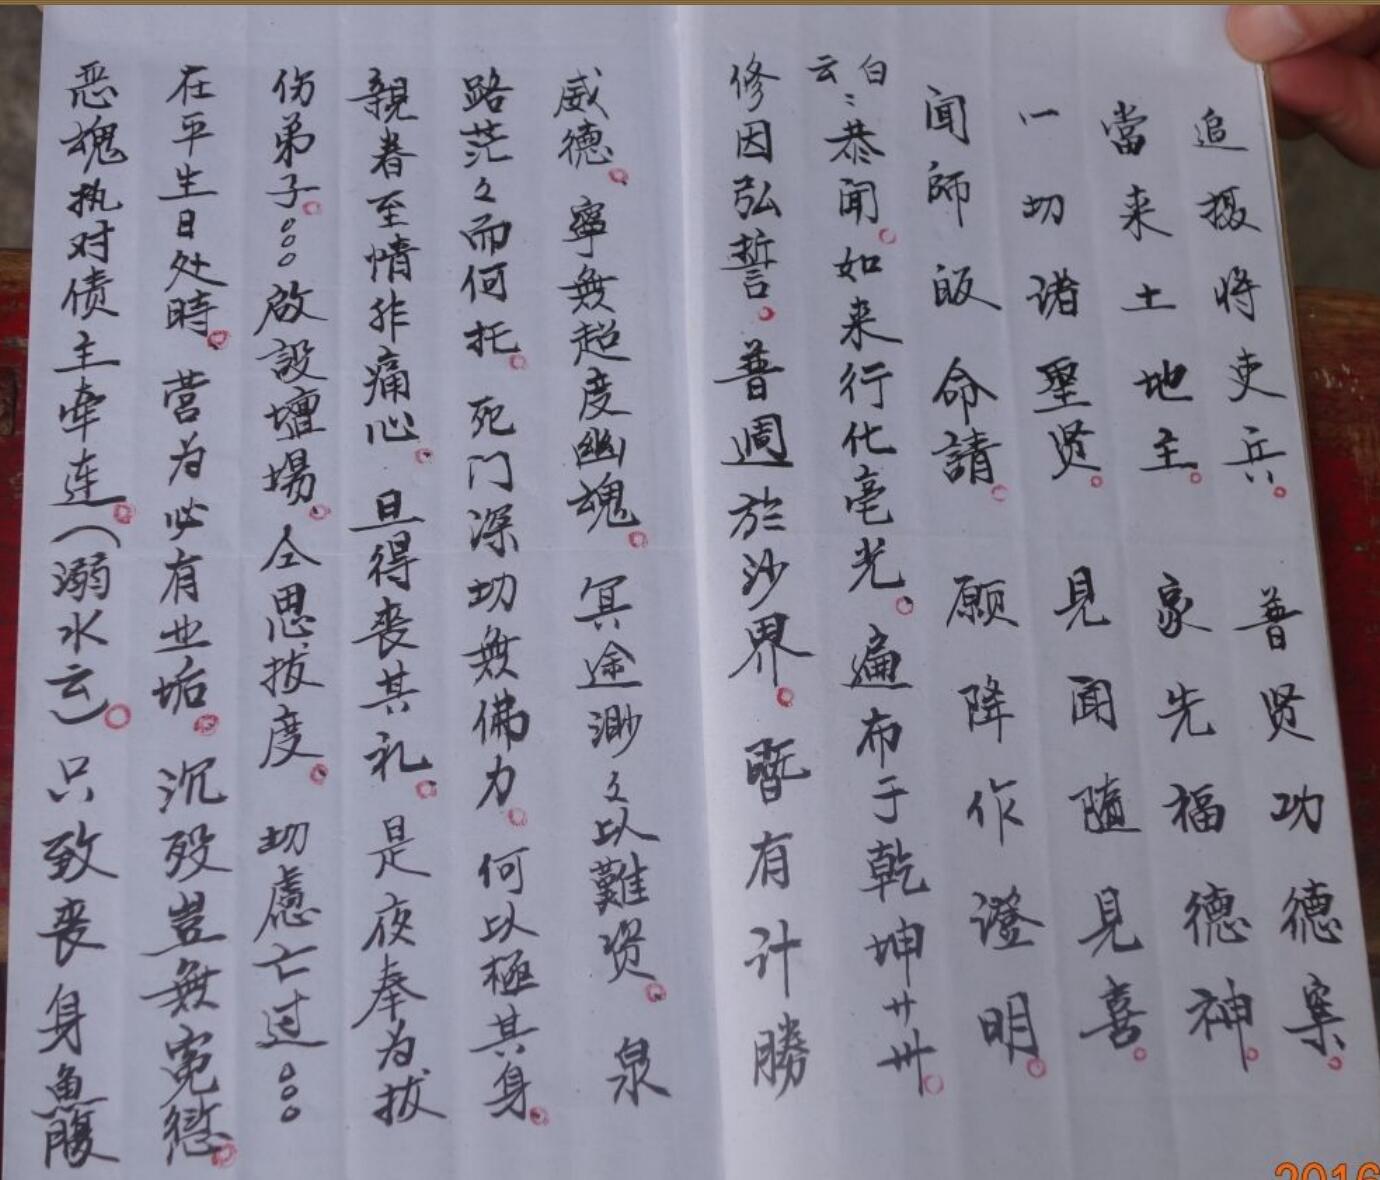 追摄将吏兵。普贤功德案。
當来土地主。家先福德神。
一切诸聖贤。見闻隨見喜。
闻師皈命請。願降作證明。
白云：恭闻。如来行化毫光。遍布于乾坤廾卅。
修因弘誓。普週於沙界。既有计勝
威德。寧無超度幽魂。冥途渺々以難资。泉
路茫々而何托。死门深切無佛力。何以極其身。
親眷至情非痛心。且得丧其礼。是夜奉为拔
伤弟子。ooo啟設壇場。仝思拔度。切慮亡过ooo
在平生日处時。营为必有业垢。沉殁豈無冤愆。
恶魂执对债主牵连。（溺水云）。只致丧身魚腹
2016